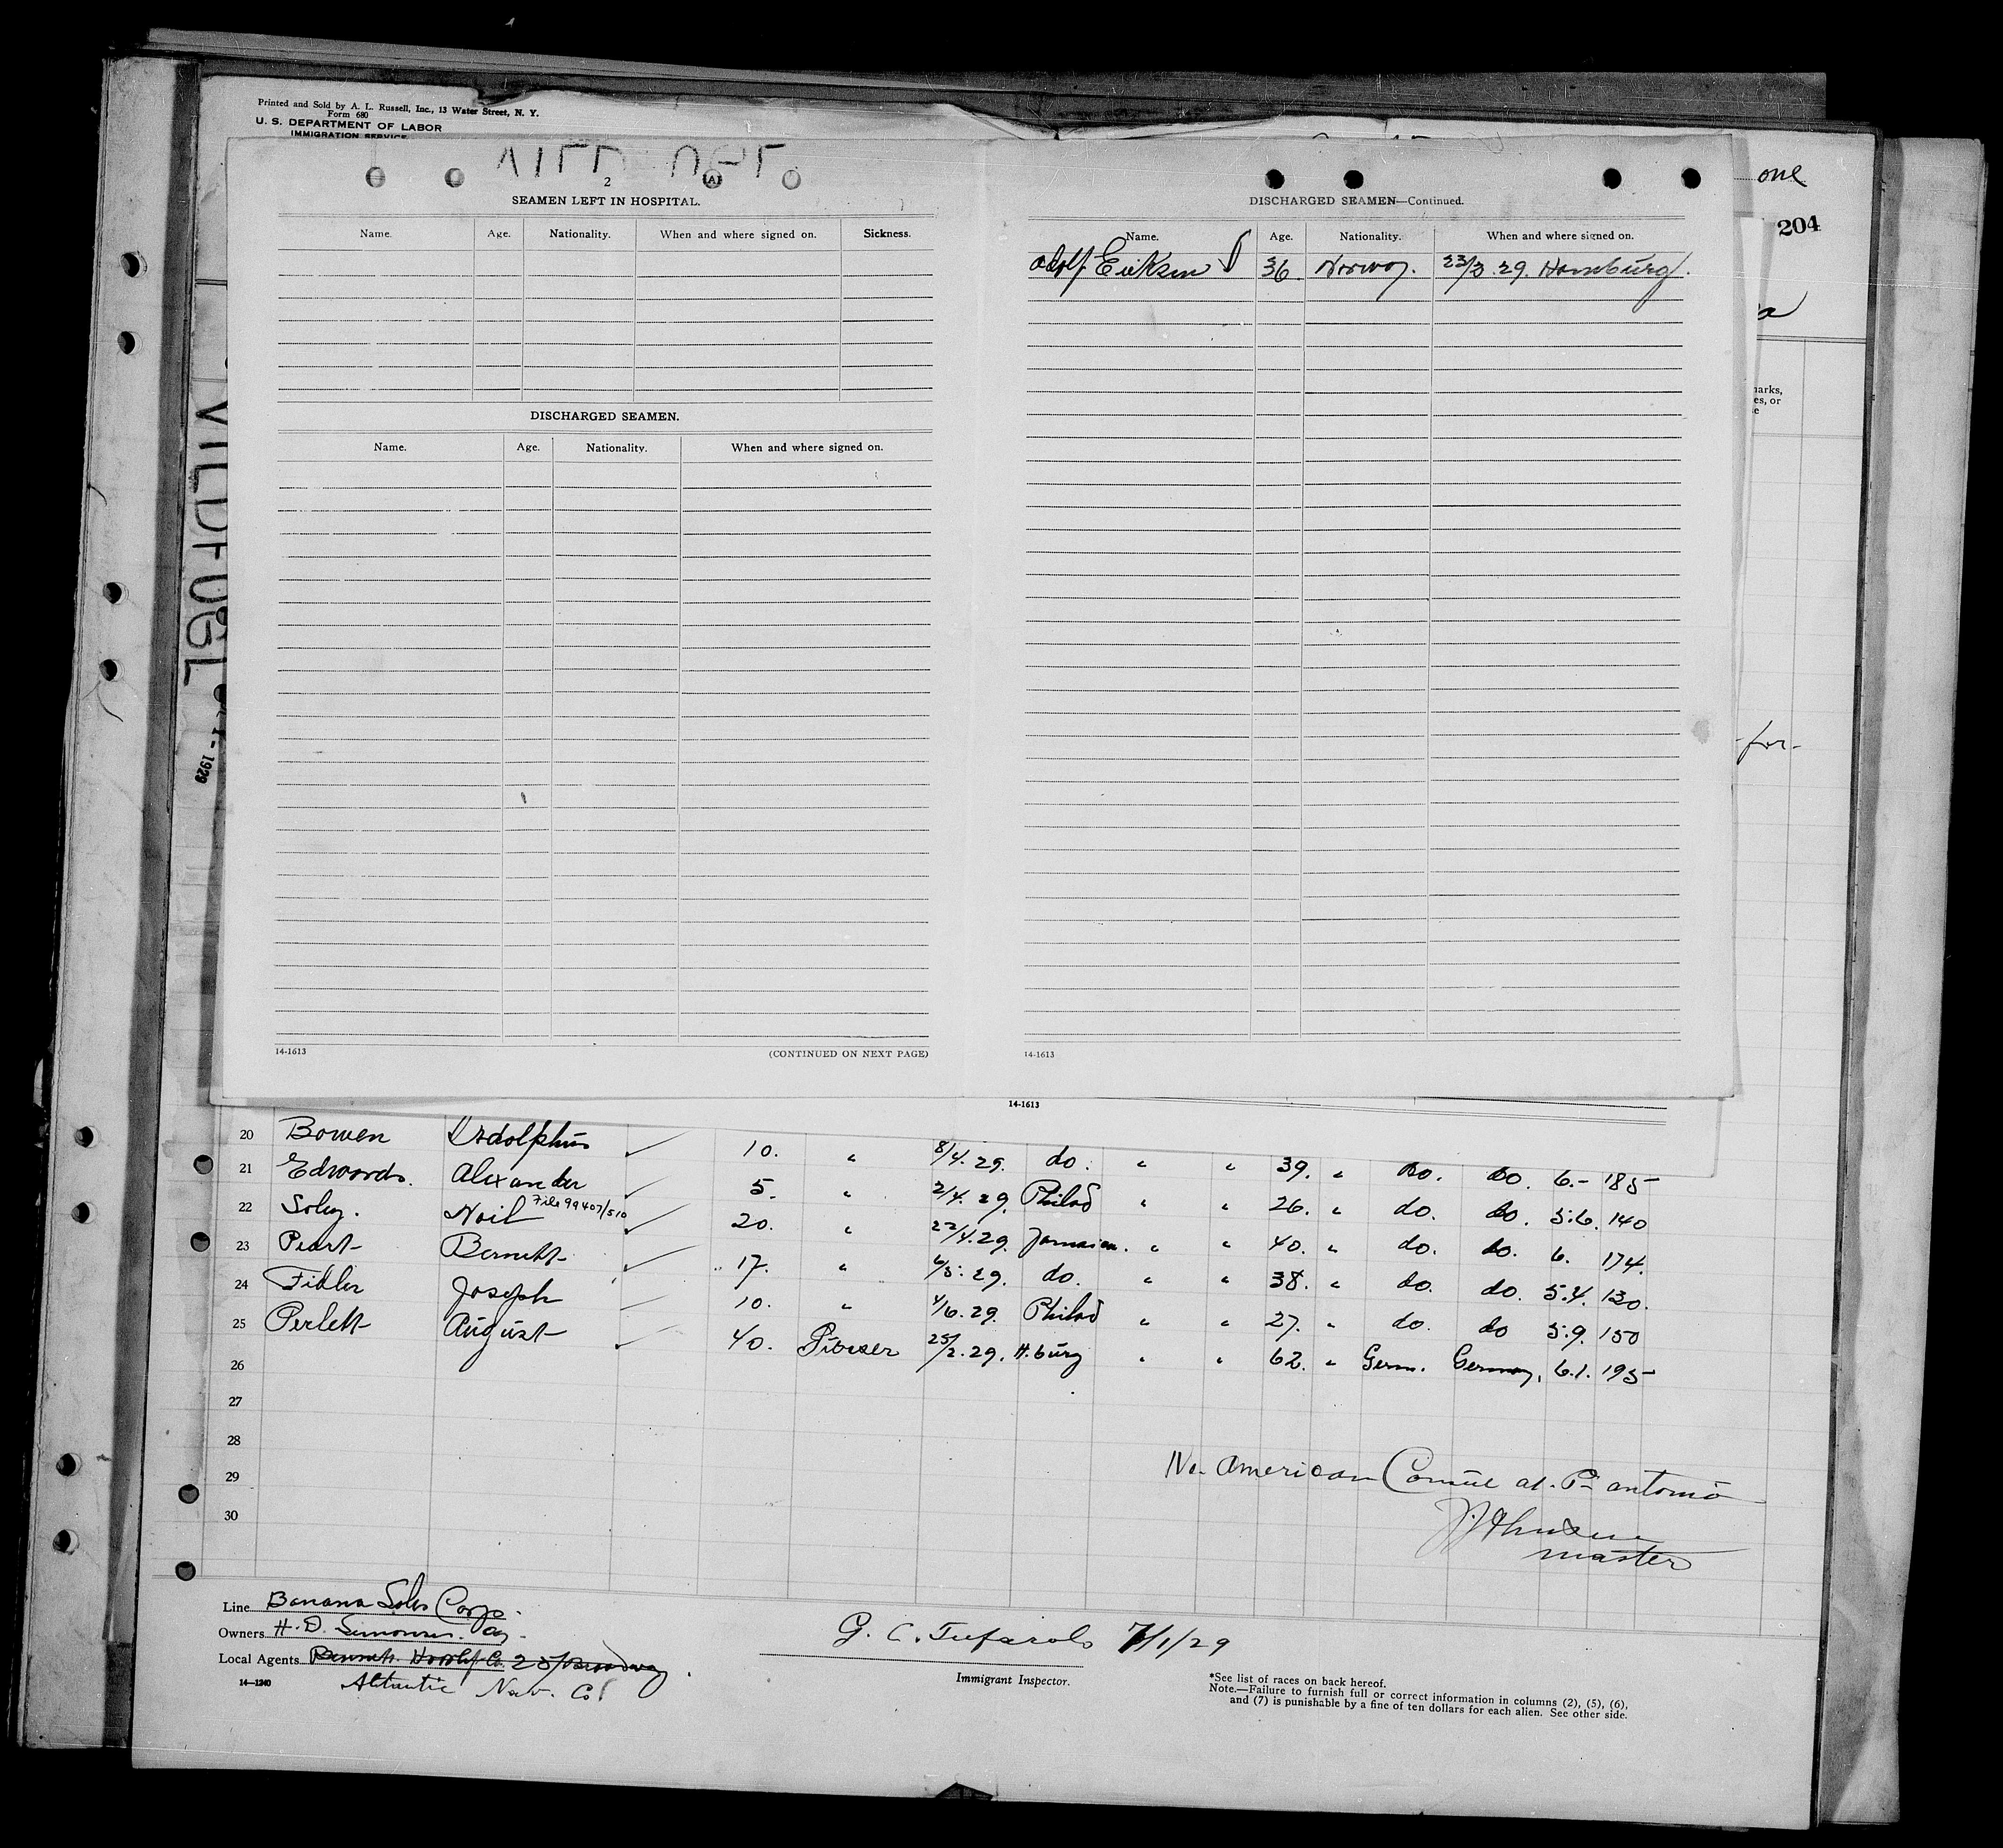 Printed and Sold by A. L. Russell, Inc., 13 Water Street, N. Y.
Form 680
U. S. DEPARTMENT OF LABOR
IMMIGRATION SERVICE
one
204
2
SEAMEN LEFT IN HOSPITAL.
Name. Age. Nationality. When and where signed on. Sickness.
DISCHARGED SEAMEN.
Name. Age. Nationality. When and where signed on.
14-1613 (CONTINUED ON NEXT PAGE)
DISCHARGED SEAMEN—Continued.
Name. Age. Nationality. When and where signed on.
Adolf Eriksen 36 Norway. 23/3.29. Hamburg.
14-1613
arks,
es, or
e
-for-
VILDFUGL
1929
14-1613
20 Bowen Drdolphus 10. " 8/4.29. do. " " 39. " do. do. 6.- 185
21 Edwards. Alexander 5. " 2/4.29 Philad " " 26. " do. do. 5.6. 140
22 Soley. Noil File 99407/510 20. " 22/4.29. Jamaica. " " 40. " do. do. 6. 174.
23 Peart Bernett 17. " 6/5.29. do. " " 38. " do. do. 5.4. 130.
24 Fidler Joseph 10. " 4/6.29. Philad " " 27. " do. do 5.9. 150
25 Perlett August 40. 25/2.29. H.burg " " 62. " Germ. Germany, 6.1. 195
26
27
28
29
30
No American Consul at P- Antonio
master
Line Banana Sales Corp.
Owners H. D. Simonsen.
Local Agents 25 Broadway
Atlantic Nav. Co
14—1240
G. C. Tufarolo 7/1/29
Immigrant Inspector.
*See list of races on back hereof.
Note.—Failure to furnish full or correct information in columns (2), (5), (6),
and (7) is punishable by a fine of ten dollars for each alien. See other side.